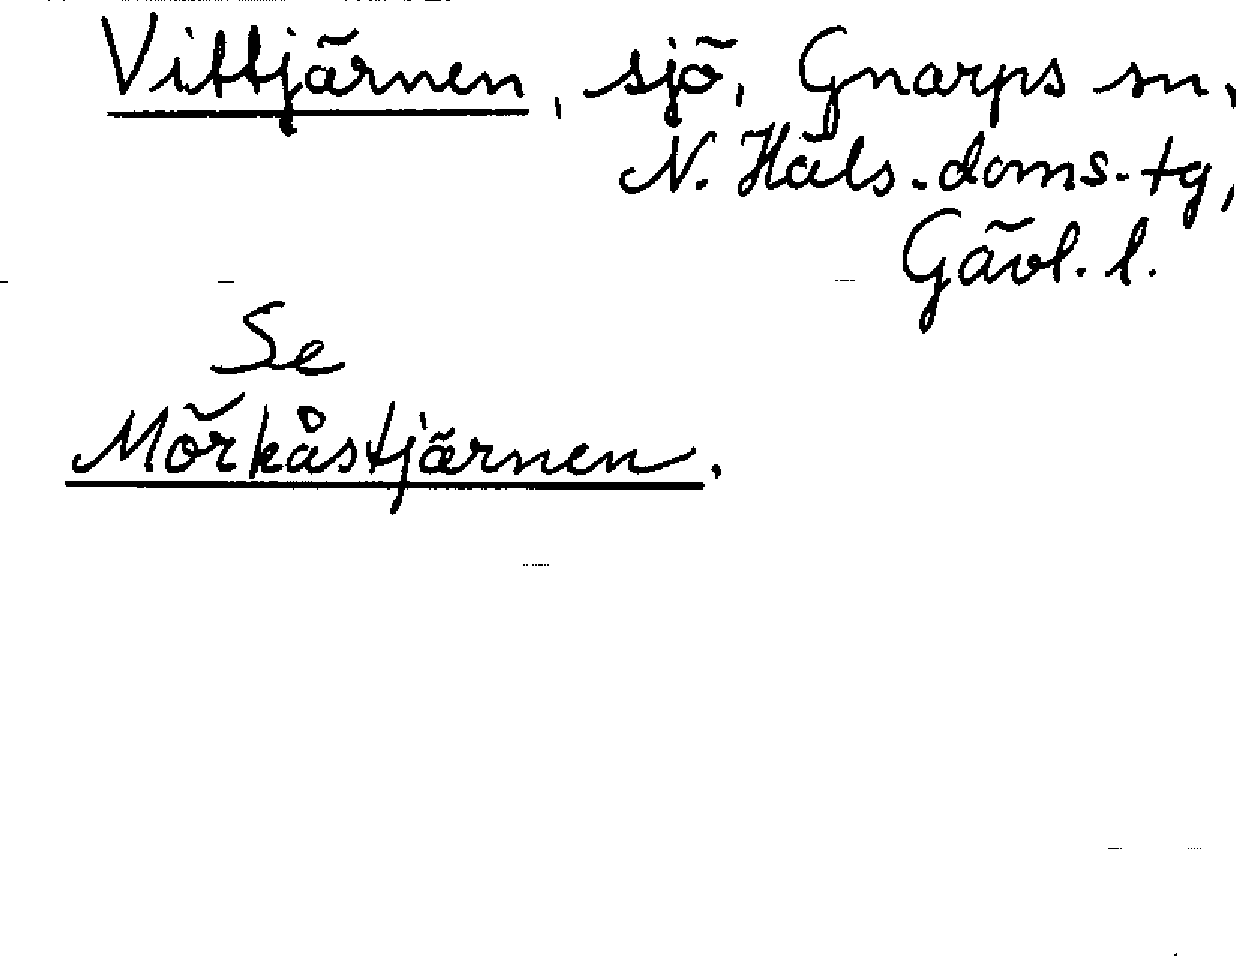 Vittjärnen, sjö, Gnarps sn,
N. Häls. doms. tg,
Gävl. l.
Se
Mörkåstjärnen.